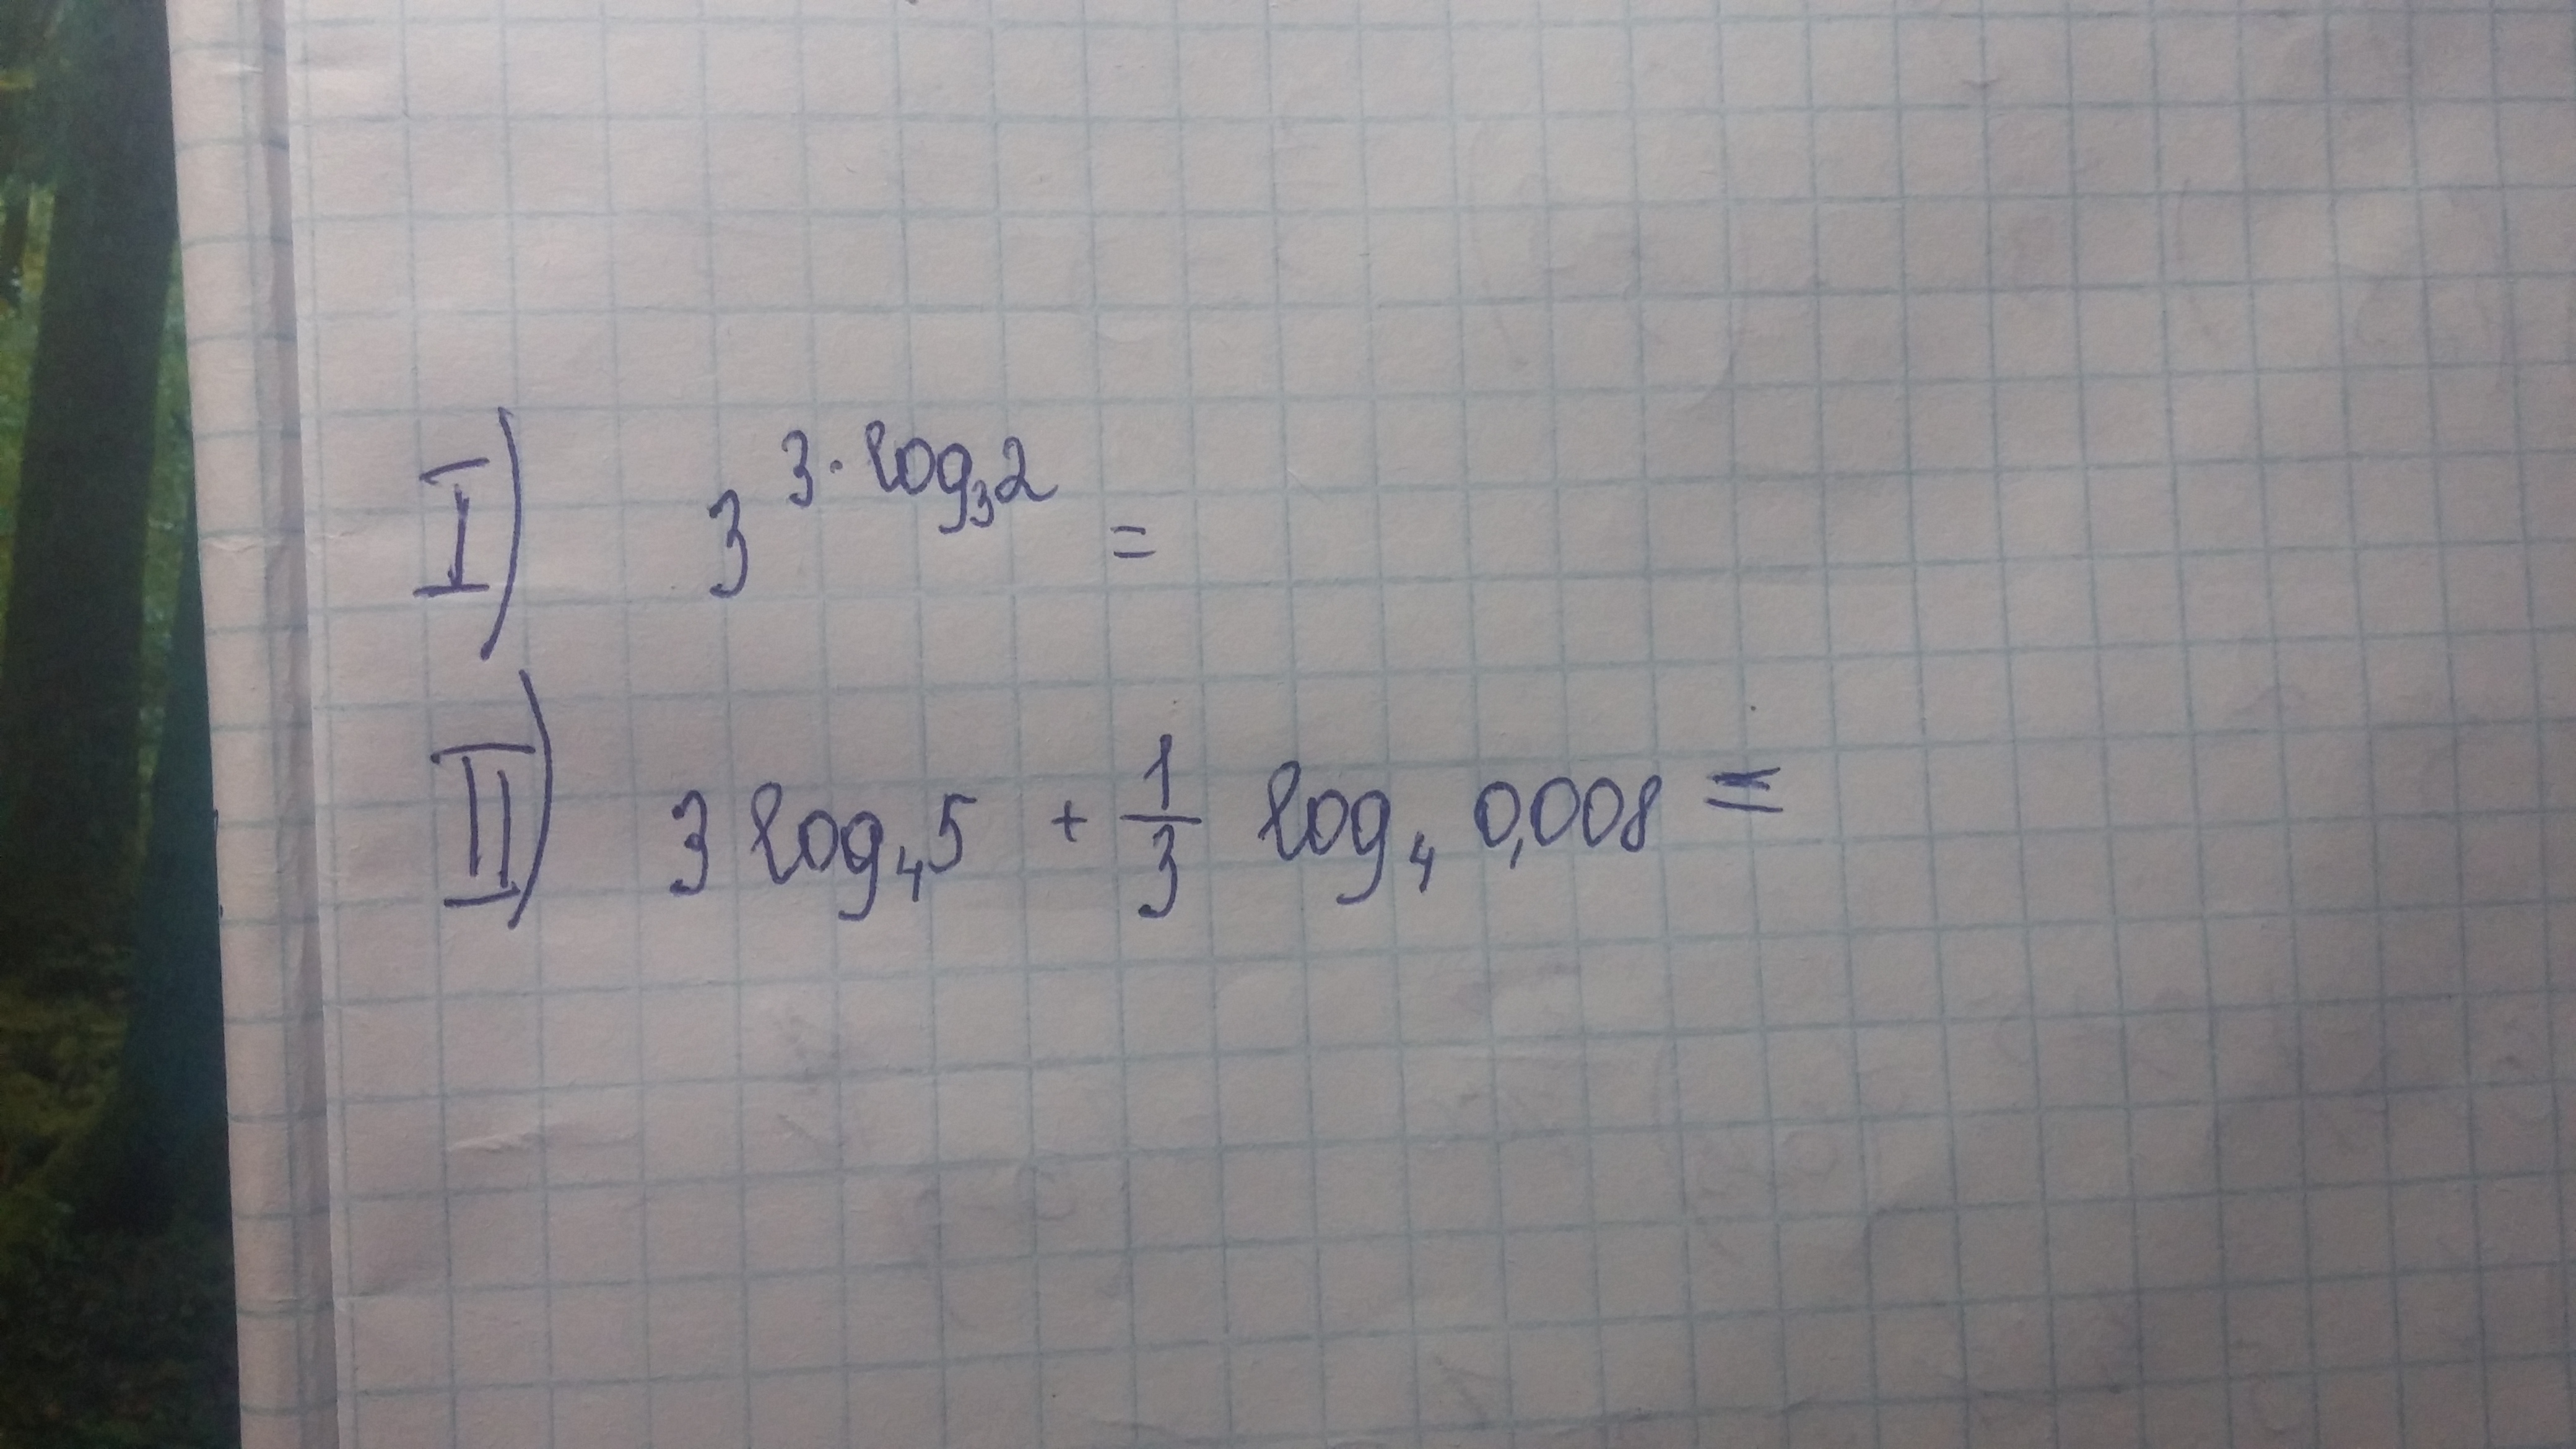 I) 3^{3·log₃2} =
II) 3 log₄5 + 1/3 log₄ 0,008 =